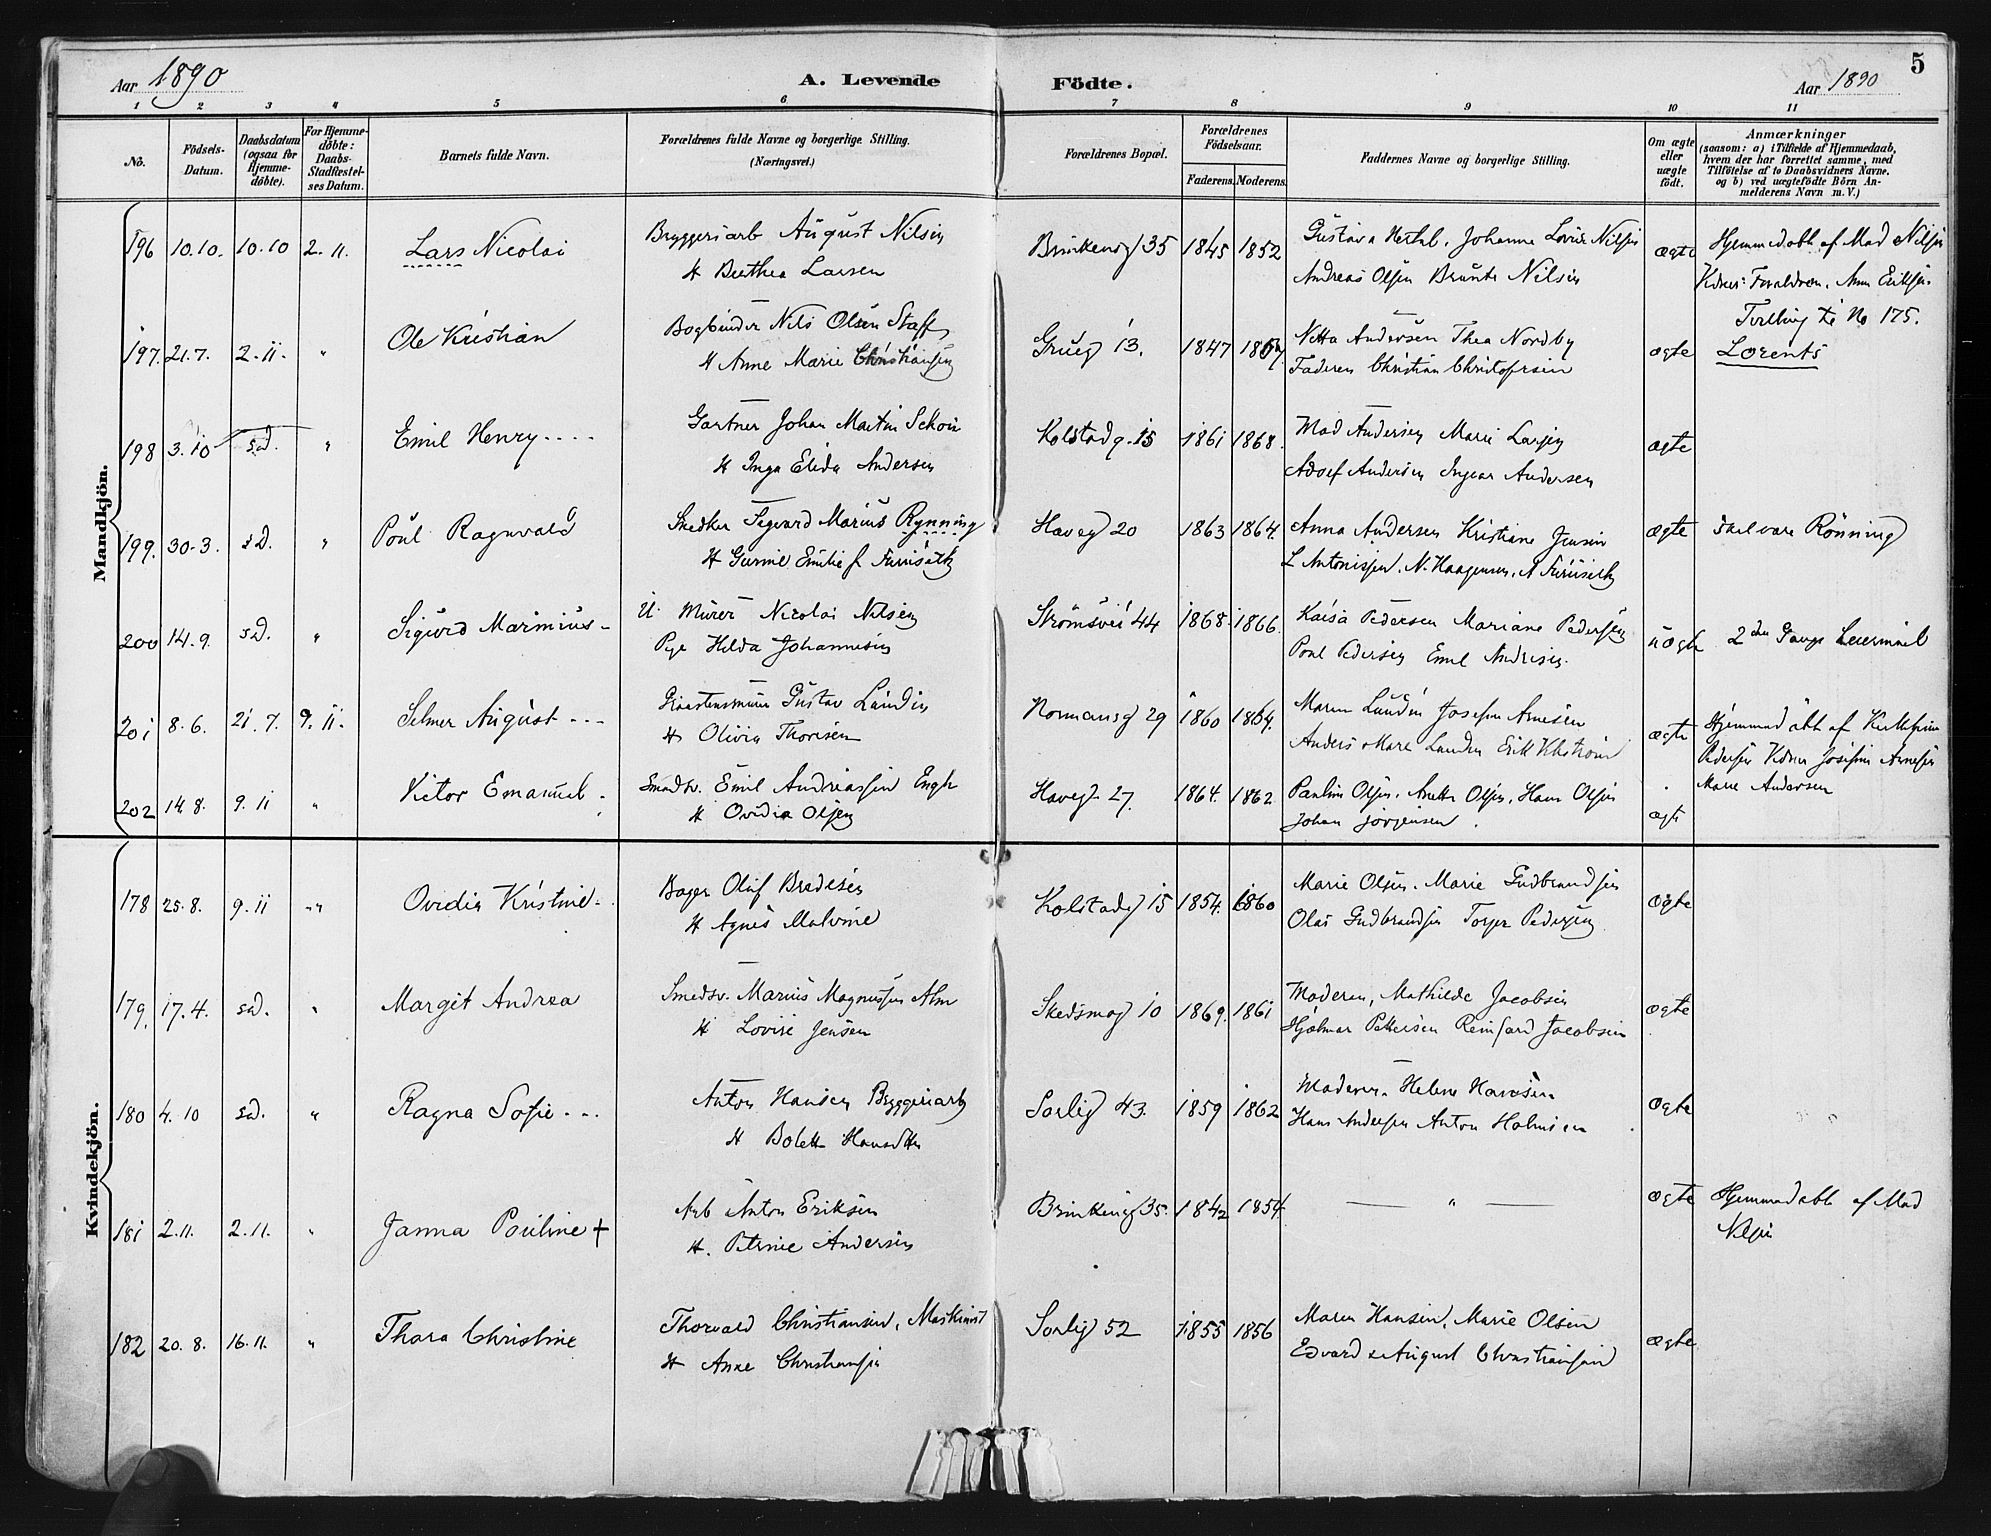 5
Aar 1890 A. Levende Födte. Aar 1890
1 2 3 4 5 6 7 8 9 10 11
Nö. Födsels-Datum. Daabsdatum (ogsaa for Hjemme-döbte). For Hjemme-döbte: Daabs-Stadfæstel-ses Datum. Barnets fulde Navn. Forældrenes fulde Navne og borgerlige Stilling. (Næringsvei.) Forældrenes Bopæl. Forældrenes Födselsaar. Faderens. Moderens. Faddernes Navne og borgerlige Stilling. Om ægte eller uægte födt. Anmærkninger (saasom: a) i Tilfælde af Hjemmedaab, hvem der har forrettet samme, med Tilföielse af to Daabsvidners Navne. og b) ved uægtefödte Börn An-melderens Navn m. V.)
Mandkjön.
196 10.10. 10.10 2.11. Lars Nicolai Bryggeriarb August Nilsen Brinkeng 35 1845 1852 Gustava Johanne Lovise Nilsen ægte Hjemmedöbt af Mad Nilsen
H Berthea Larsen Andreas Olsen Nilsen Forældrene. Anna Eriksen.
Tvilling til No 175.
197. 21.7. 2.11. " Ole Kristian Bogbinder Nils Olsen Staff Grüeg 13. 1847 Netta Andersen Thea Nordby ægte Lorents
H Anne Marie Christiansen Faderen Christian Christofersen
198 3.10 s.d. " Emil Henry.... Gartner Johan Martin Schou Kolstadg. 15 1861 1868. Mad Andersen Marie Larsen ægte
H Inga Elida Andersen Adolf Andersen Ingvar Andersen
199. 30-3. s.d. " Poul Ragnvald Snedker Segvard Marius Rynning Haveg 20 1863 1864. Anna Andersen Kristiane Jensen ægte Rönning
H Gurine Emilie f. Furuseth L Antonissen. N. Haagensen. A Furuseth
200 14.9. s.d. " Sigurd Marinius- U. Murer Nicolai Nilsen Strömsvei 44 1868. 1866. Kaisa Pedersen Mariane Pedersen uægte 2den Gangs Leiermaal
Pge Hilda Johannesen Poul Pedersen Emil Andresen.
201 8.6. 21.7. 9.11. Selmer August --- Gustav Lundin Normansg 29 1860 1864. Maren Lundin Josefine Arnesen ægte Hjemmedöbt af
H Olivia Thoresen Anders Lundin Erik Pedersen Josefine Arnesen
202 14.8. 9.11 " Victor Emanuel. Smedsv. Emil Andreassen Engh Haveg. 27. 1864. 1862. Pauline Olsen. Anette Olsen. Hans Olsen ægte Marie Andersen
H Ovidia Olsen Johan Jörgensen.
Kvindekjön.
178 25.8. 9.11 " Ovidia Kristine. Bager Oluf Bredesen Kolstadg 15 1854. 1860 Marie Olsen. Marie Gudbrandsen ægte
H Agnes Malvine Olai Gudbrandsen Torger Pedersen
179. 17.4. s.d. " Margit Andrea Smedsv. Marius Magnussen Alm Skedsmog 10 1869. 1861 Moderen, Mathilde Jacobsen ægte
H Lovise Jensen Hjalmar Pettersen Reinhard Jacobsen
180 4.10 s.d. " Ragna Sofie... Anton Hansen Bryggeriarb Sorlig 43. 1859 1862 Moderen. Helene Hansen ægte
H Bolette Hans Andersen Anton Holmsen
181 2.11. 2.11. " Janna Pouline + Arb Anton Eriksen Brinkeng 35. 1842 1854. — " — ægte Hjemmedöbt af Mad
H. Petrine Andersen Nilsen
182 20.8. 16.11. " Thora Christine Thorvald Christiansen, Maskinist Sorlig 52 1855 1856 Maren Hansen, Marie Olsen ægte
H Anne Christiansen Edvard & August Christiansen